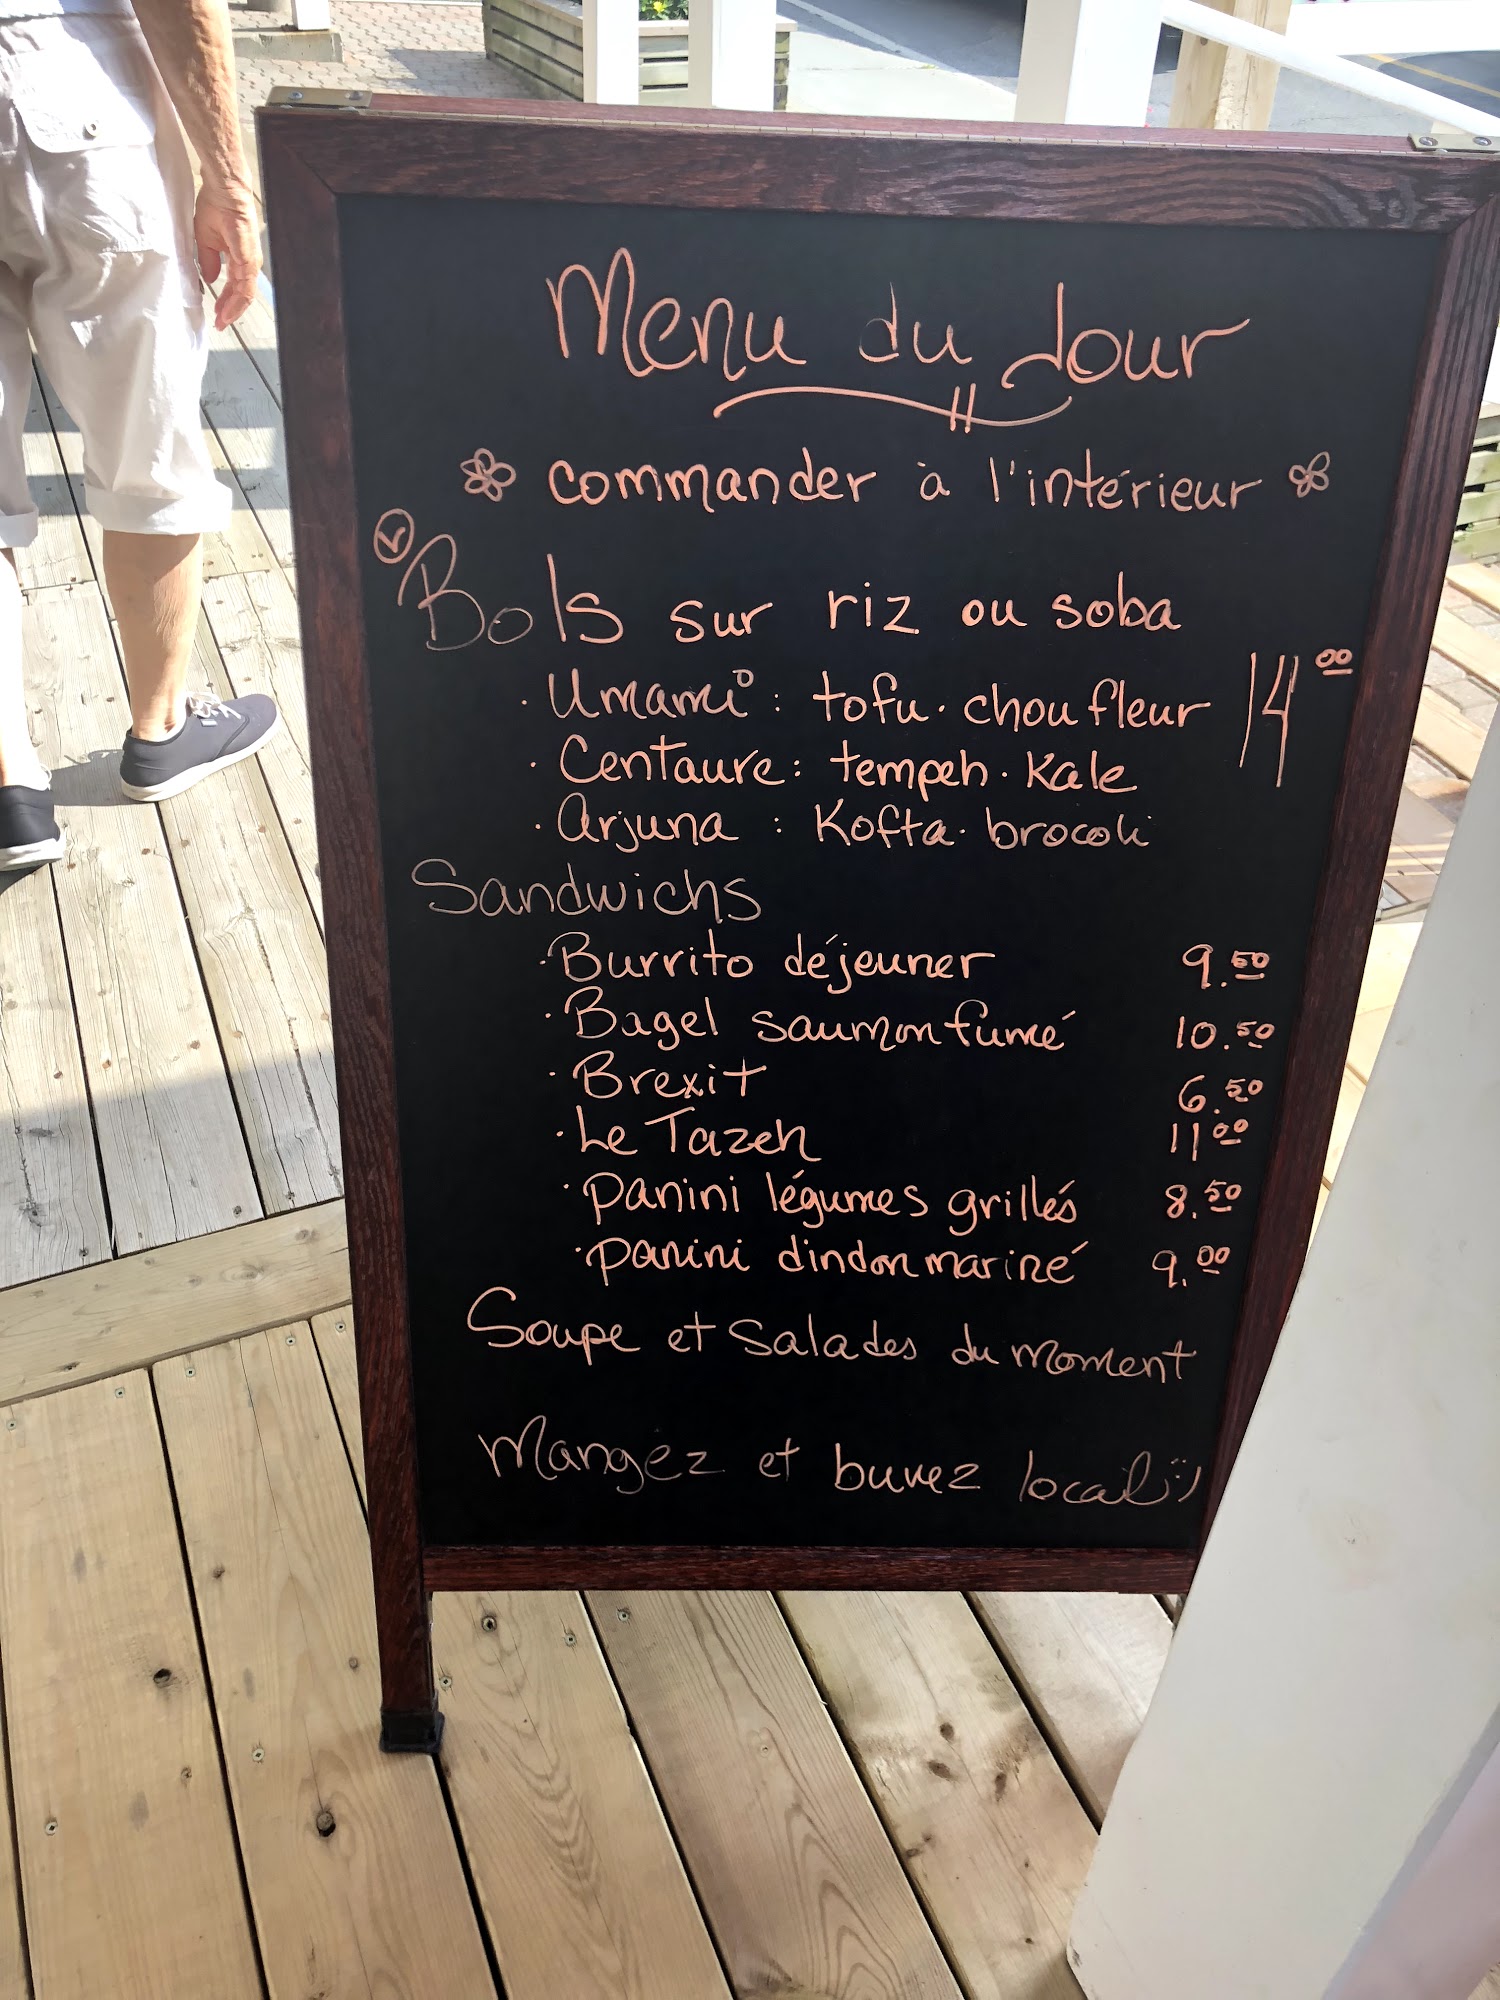 Menu du Jour
commander à l'intérieur
V Bols sur riz ou soba
· Umami : tofu · chou fleur 14 00
· Centaure : tempeh · Kale
· Arjuna : Kofta · brocoli
Sandwichs
· Burrito déjeuner 9.50
· Bagel saumon fumé 10.50
· Brexit 6.50
· Le Tazeh 11 00
· panini légumes grillés 8.50
· panini dindon mariné 9.00
Soupe et Salades du moment
Mangez et buvez local :)